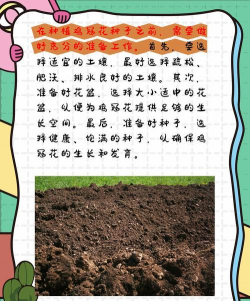 在种植鸡冠花种子之前，需要做
好充分的准备工作。首先，要选
择适宜的土壤，最好选择疏松、
肥沃、排水良好的土壤。其次，
准备好花盆，选择大小适中的花
盆，以便为鸡冠花提供足够的生
长空间。最后，准备好种子，选
择健康、饱满的种子，以确保鸡
冠花的生长和发育。